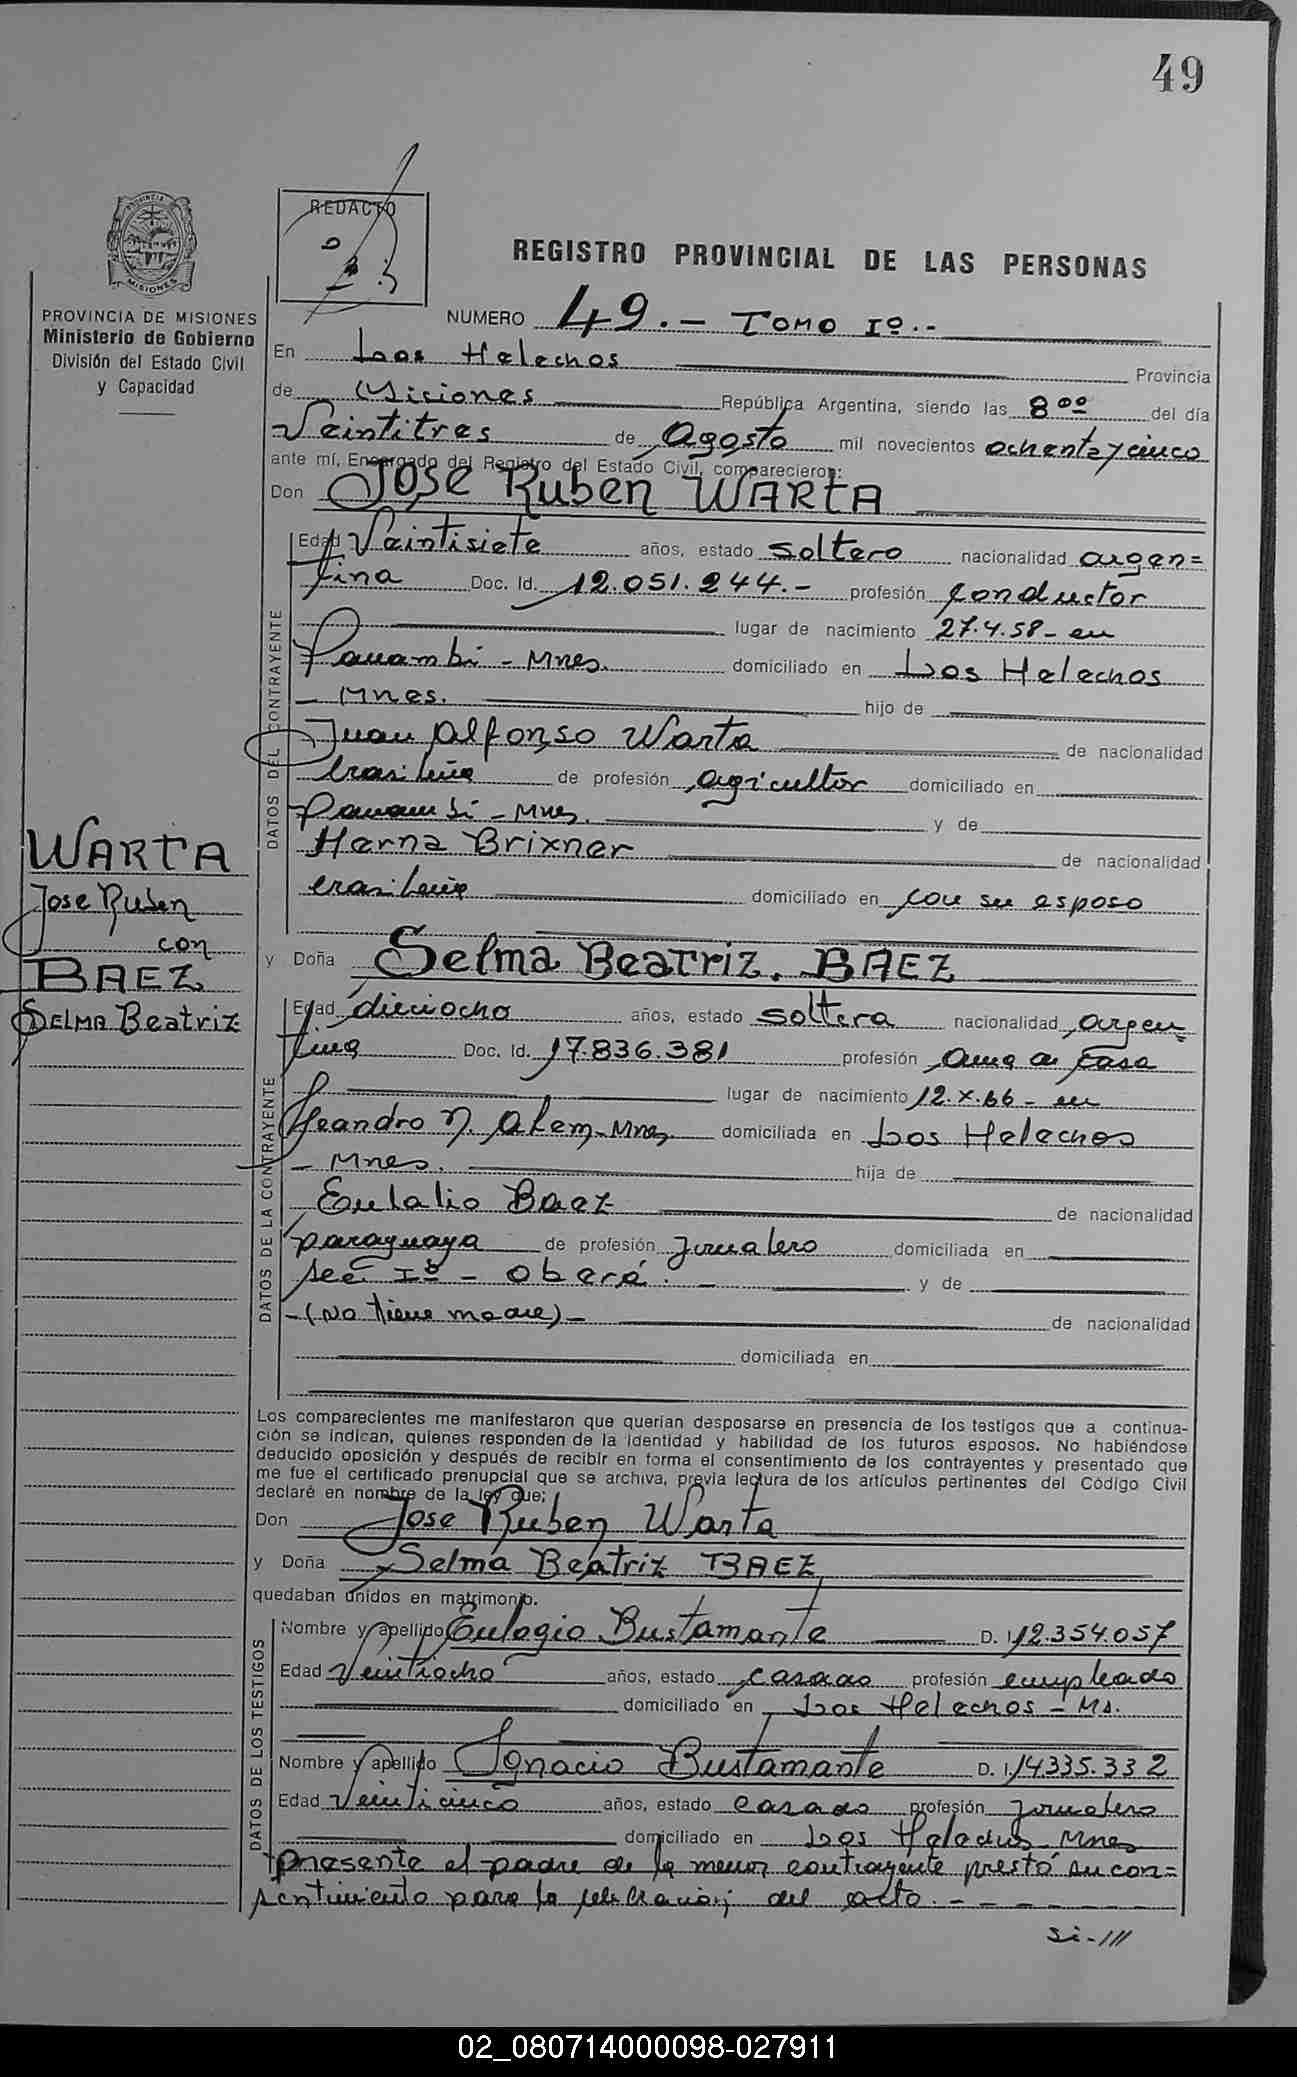 49
REDACTO
REGISTRO PROVINCIAL DE LAS PERSONAS
PROVINCIA DE MISIONES
Ministerio de Gobierno
División del Estado Civil
y Capacidad
NUMERO 49.- Tomo Iº.-
En Los Helechos Provincia
de Misiones República Argentina, siendo las 8ºº del día
Veintitres de Agosto mil novecientos ochenta y cinco
ante mí, Encargado del Registro del Estado Civil, comparecieron:
Don Jose Ruben WARTA
DATOS DEL CONTRAYENTE
Edad Veintisiete años, estado soltero nacionalidad argen=
tina Doc. Id. 12.051.244.- profesión conductor
lugar de nacimiento 27.4.58 - en
Panambi - Mnes. domiciliado en Los Helechos
- Mnes. hijo de
Juan Alfonso Warta de nacionalidad
brasileña de profesión agricultor domiciliado en
Panambi - Mnes. y de
Herna Brixner de nacionalidad
brasileña domiciliado en con su esposo
WARTA
Jose Ruben
con
BAEZ
SELMA Beatriz
y Doña Selma Beatriz. BAEZ
DATOS DE LA CONTRAYENTE
Edad dieciocho años, estado soltera nacionalidad argen
tina Doc. Id. 17.836.381 profesión ama de casa
lugar de nacimiento 12.X.66 - en
Leandro N. Alem - Mnes domiciliada en Los Helechos
- Mnes. hija de
Eulalio Baez de nacionalidad
paraguaya de profesión Jornalero domiciliada en
Secc Iº - Oberá. - y de
- (No tiene madre) - de nacionalidad
domiciliada en
Los comparecientes me manifestaron que querían desposarse en presencia de los testigos que a continua-
ción se indican, quienes responden de la identidad y habilidad de los futuros esposos. No habiéndose
deducido oposición y después de recibir en forma el consentimiento de los contrayentes y presentado que
me fue el certificado prenupcial que se archiva, previa lectura de los artículos pertinentes del Código Civil
declaré en nombre de la ley que;
Don Jose Ruben Warta
y Doña Selma Beatriz BAEZ
quedaban unidos en matrimonio.
DATOS DE LOS TESTIGOS
Nombre y apellido Eulogio Bustamante D. I. 12.354.057
Edad Veintiocho años, estado casado profesión empleado
domiciliado en Los Helechos - Ms.
Nombre y apellido Ignacio Bustamante D. I. 14335.332
Edad Veinticinco años, estado casado profesión Jornalero
domiciliado en Los Helechos - Mnes
presente el padre de la menor contrayente prestó su con=
sentimiento para la celebración del acto. - - - - - -
Si-///
02_080714000098-027911